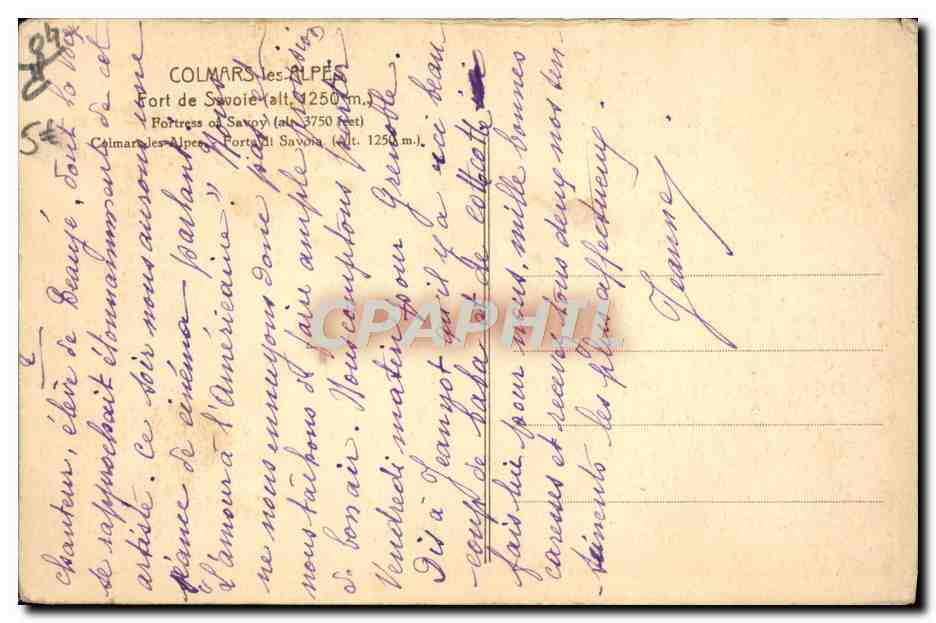 COLMARS-les-ALPES
Fort de Savoie (alt. 1250 m.)
Fortress of Savoy (alt. 3750 feet)
Colmars-les-Alpes - Forte di Savoia (Alt. 1250 m.)
04
5€
2
chanteur, élève de Beaujé, dont la voix
se rapprochait étonnamment de cet
artiste. Ce soir nous aurons une
séance de cinéma parlant
"L'amour à l'américaine" Nous
ne nous ennuyons donc pas et
nous tâchons de faire ample provision
de bon air. Nous comptons partir
Vendredi matin pour Grenoble.
Dis à Jeanyot qu'il y a ici beau
coup de
fais lui pour nous, mille bonnes
caresses et recevez tous deux nos sen-
timents les plus affectueux.
Jeanne
CPAPHIL